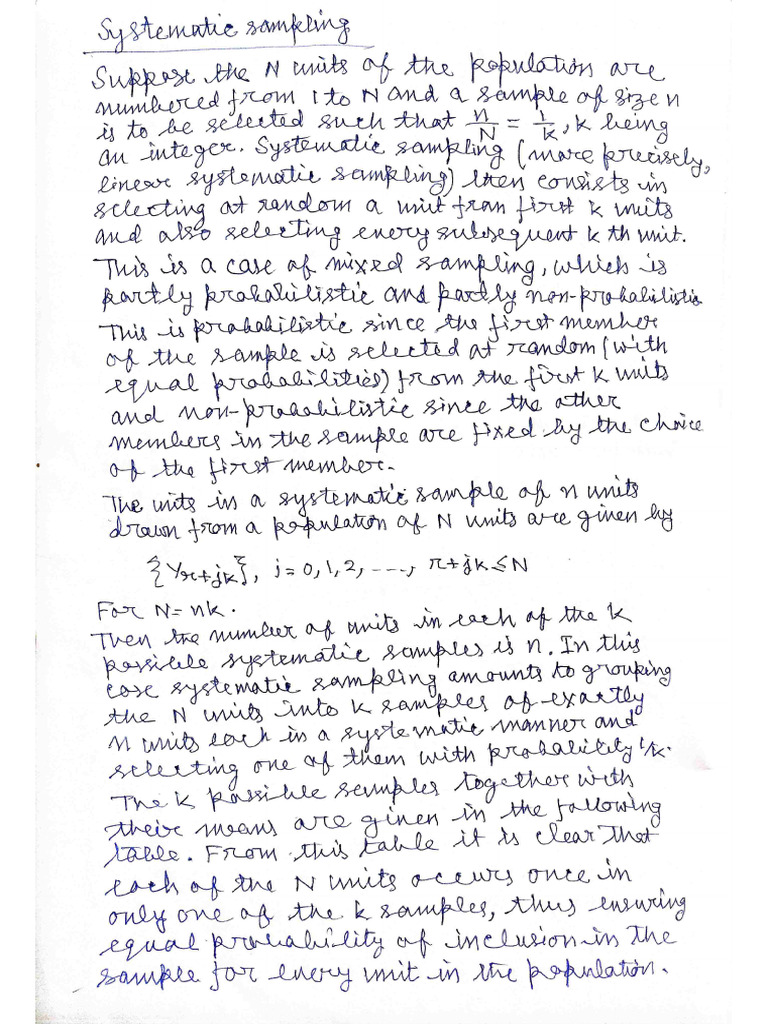 Systematic sampling
Suppose the N units of the population are
numbered from 1 to N and a sample of size n
is to be selected such that n/N = 1/k, k being
an integer. Systematic sampling (more precisely,
linear systematic sampling) then consists in
selecting at random a unit from first k units
and also selecting every subsequent k th unit.
This is a case of mixed sampling, which is
partly probabilistic and partly non-probabilistic
This is probabilistic since the first member
of the sample is selected at random (with
equal probabilities) from the first k units
and non-probabilistic since the other
members in the sample are fixed by the choice
of the first member.
The units in a systematic sample of n units
drawn from a population of N units are given by
{Yr+jk}, j = 0, 1, 2, ----, r+jk ≤ N
For N = nk.
Then the number of units in each of the k
possible systematic samples is n. In this
case systematic sampling amounts to grouping
the N units into k samples of exactly
n units each in a systematic manner and
selecting one of them with probability 1/k.
The k possible samples together with
their means are given in the following
table. From this table it is clear that
each of the N units occurs once in
only one of the k samples, thus ensuring
equal probability of inclusion in the
sample for every unit in the population.